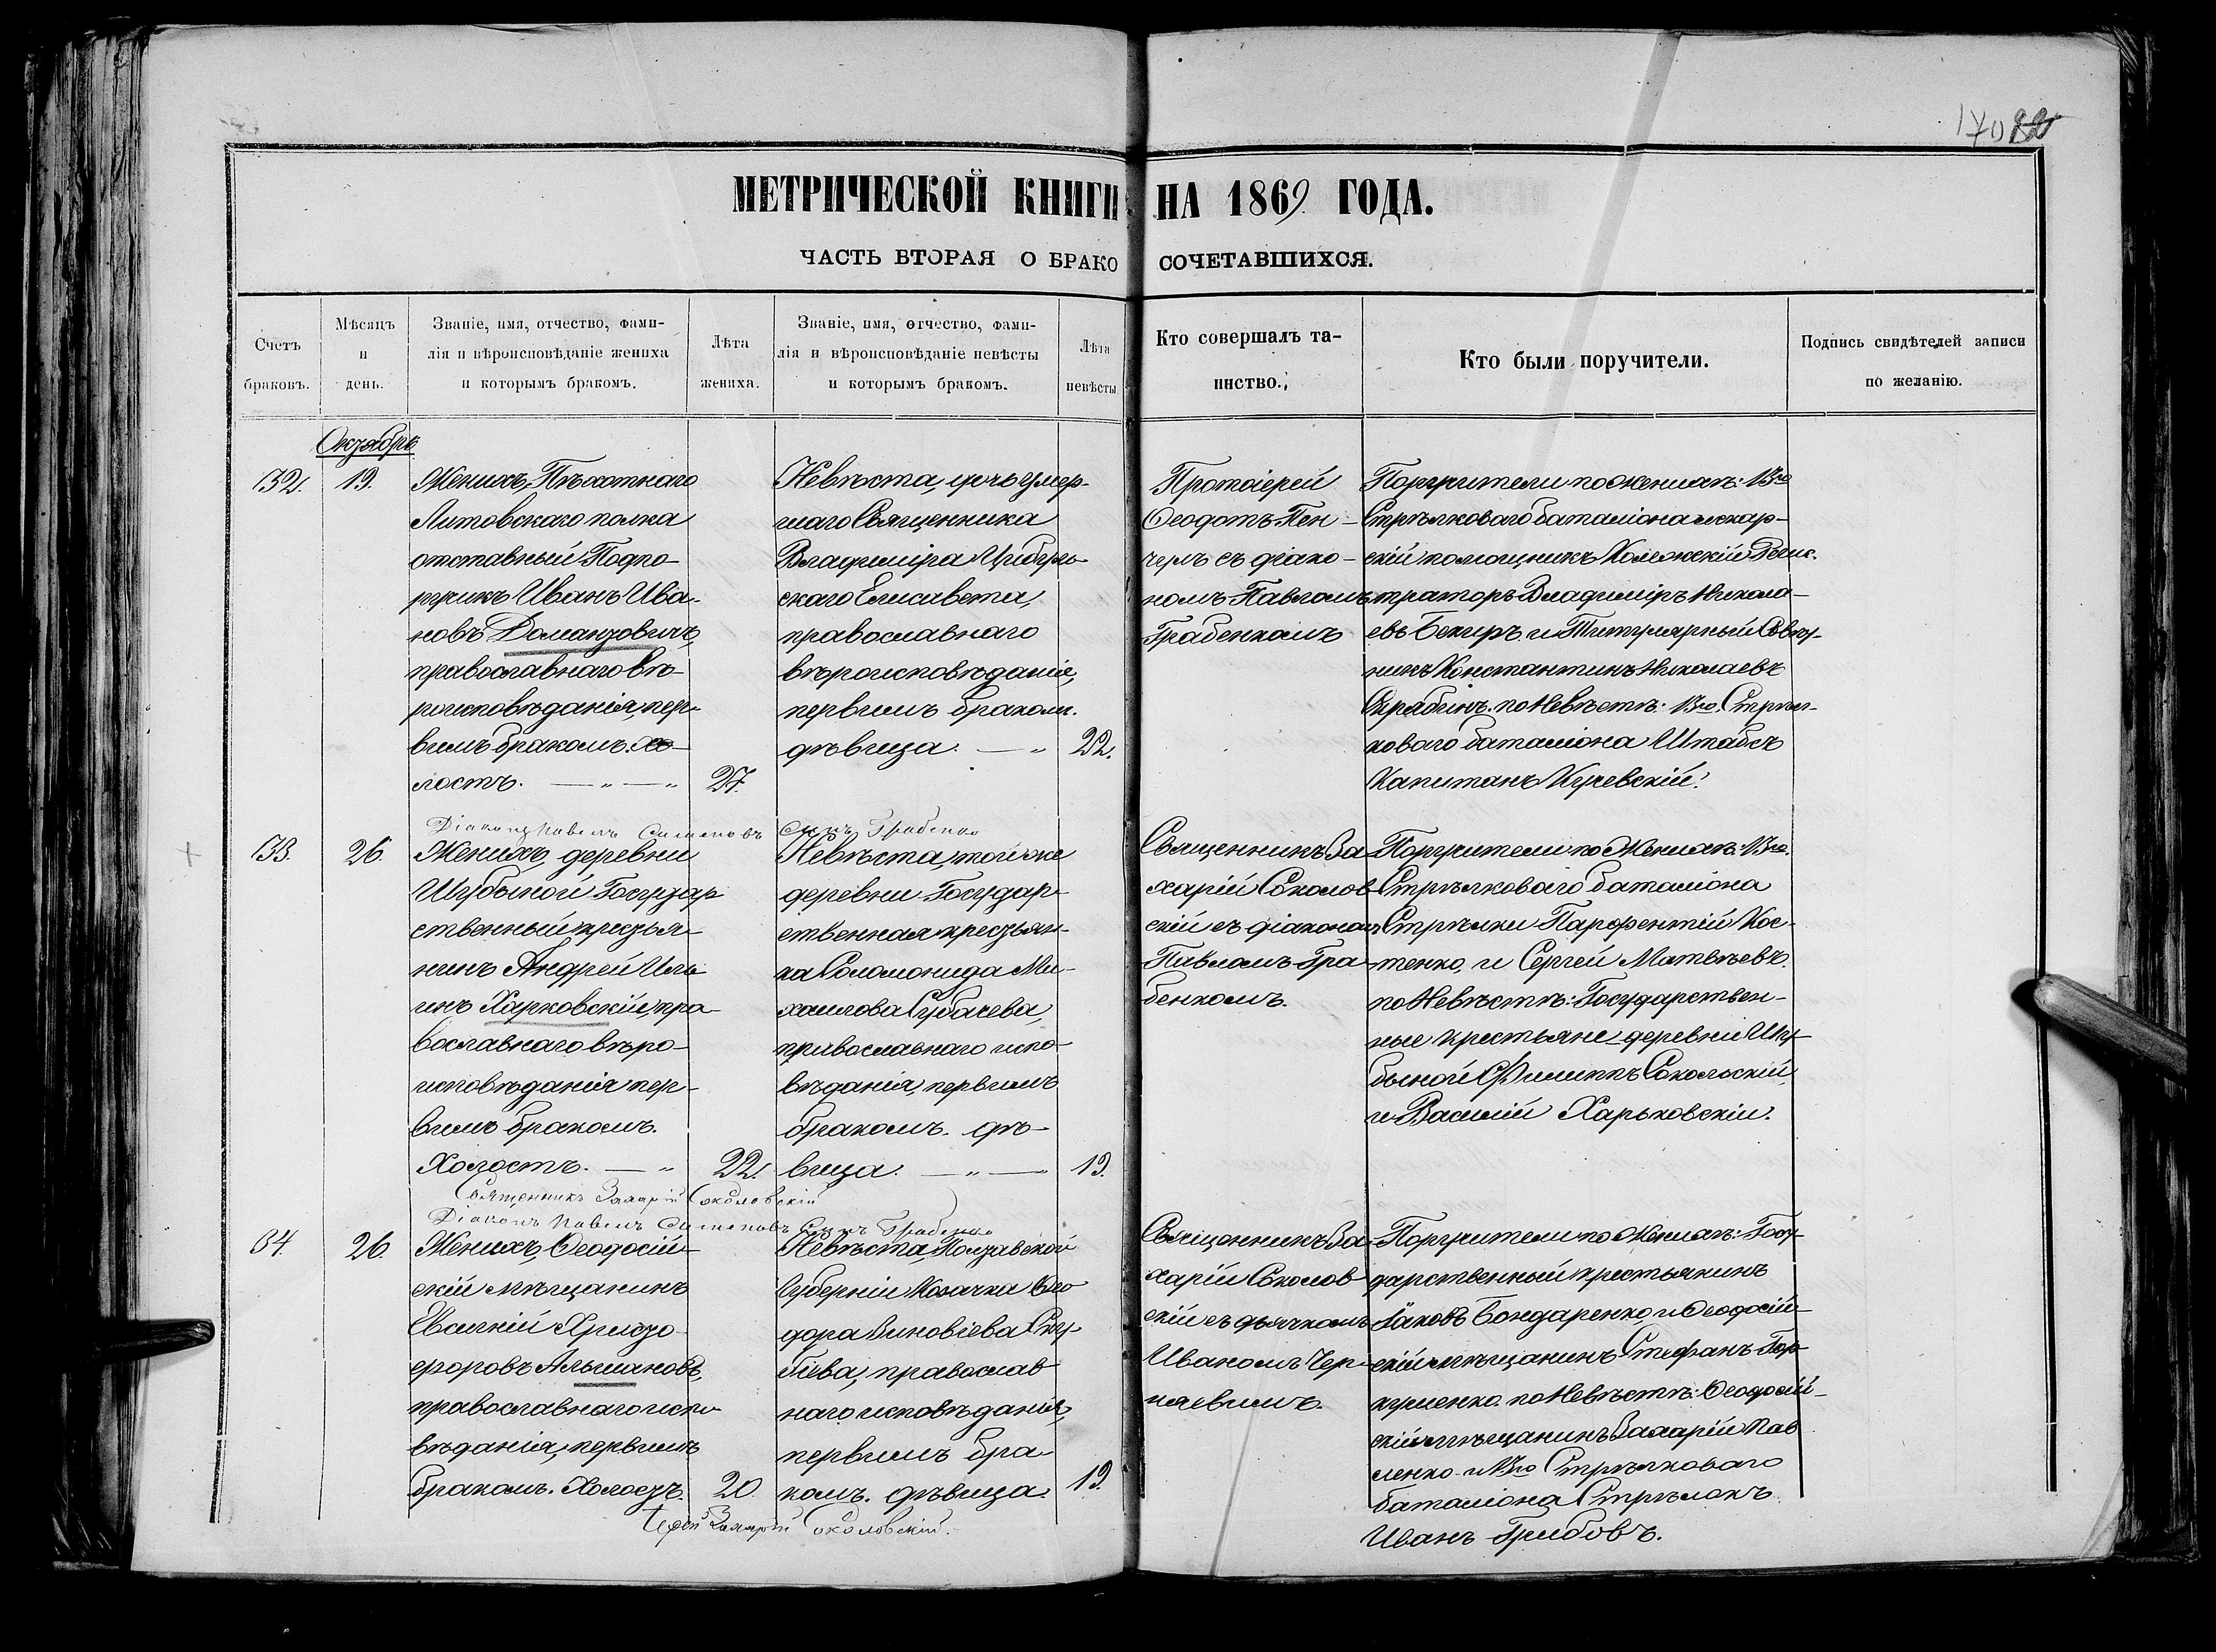 170
МЕТРИЧЕСКОЙ КНИГИ НА 1869 ГОДА.
ЧАСТЬ ВТОРАЯ О БРАКОСОЧЕТАВШИХСЯ.
Счетъ браковъ.
Мѣсяцъ и день.
Званіе, имя, отчество, фами-
лія и вѣроисповѣданіе жениха
и которымъ бракомъ.
Лѣта жениха.
Званіе, имя, отчество, фами-
лія и вѣроисповѣданіе невѣсты
и которымъ бракомъ.
Лѣта невѣсты
Кто совершалъ та-
инство.
Кто были поручители.
Подпись свидѣтелей записи
по желанію.
Октябрь
132. 19.
Женихъ, Пѣхотнаго
Литовскаго полка
отставный Подпо-
ручикъ Иванъ Ива-
новъ Домантовичъ,
православнаго вѣ-
роисповѣданія, пер-
вымъ бракомъ. Хо-
лостъ. 27.
Невѣста, дочь умер-
шаго Священника
Владиміра Цибуль-
скаго Елисавета,
православнаго
вѣроисповѣданія,
первымъ бракомъ.
дѣвица. 22.
Протоіерей
Ѳеодотъ Пен-
чулъ съ діако-
номъ Павломъ
Грабенкомъ
Поручители по женихѣ: 13го
Стрѣлковаго баталіона лекар-
скій помощникъ Колежскій Регис-
траторъ Владиміръ Никола-
евъ Бекиръ и Титулярный Совѣт-
никъ Константинъ Николаевъ
Скрябинъ. по Невѣстѣ: 13го Стрѣл-
коваго баталіона Штабсъ
Капитанъ Кучевскій.
Діаконъ Павелъ Симеоновъ сынъ Грабенко
133. 26.
Женихъ, деревни
Шубыной Государ
ственный крестья-
нинъ Андрей Иль
инъ Харковскій, пра-
вославнаго вѣро-
исповѣданія пер-
вымъ бракомъ.
Холостъ. 22.
Невѣста, той же
деревни Государ-
ственная крестьян-
ка Соломонида Ми-
хаилова Субачева,
православнаго испо-
вѣданія, первымъ
бракомъ. дѣ-
вица. 19.
Священникъ За
харій Соколов
скій съ діаконом
Павломъ Гра
бенкомъ.
Поручители по Женихѣ: 13го
Стрѣлковаго баталіона
Стрѣлки Парфентій Кос-
тенко, и Сергей Матвѣевъ.
по Невѣстѣ: Государствен-
ные крестьяне деревни Шу-
быной Филиппъ Сокольскій,
и Василій Харьковскій.
Священникъ Захарій Соколовскій
Діаконъ Павелъ Симеоновъ Сынъ Грабенко
34. 26.
Женихъ, Ѳеодосій-
скій мѣщанинъ
Евгеній Христо
форовъ Альшановъ,
православнаго испо
вѣданія, первымъ
бракомъ. Холостъ. 20.
Невѣста, Полтавской
Губерніи Козачка Ѳео
дора Зиновіева Ску
біева, православ
наго исповѣданія,
первымъ бра-
комъ. дѣвица. 19.
Священникъ За
харій Соколов
скій съ дьячкомъ
Иваномъ Чер
няевымъ.
Поручители по Женихѣ: Госу
дарственный крестьянинъ
Іаковъ Бондаренко, и Ѳеодосій-
скій мѣщанинъ Стефанъ Гор-
куненко. по Невѣстѣ: Ѳеодосій-
скій мѣщанинъ Захарій Пав
ленко и 13го Стрѣлковаго
баталіона Стрѣлокъ
Иванъ Грибовъ.
Іерей Захарій Соколовскій.